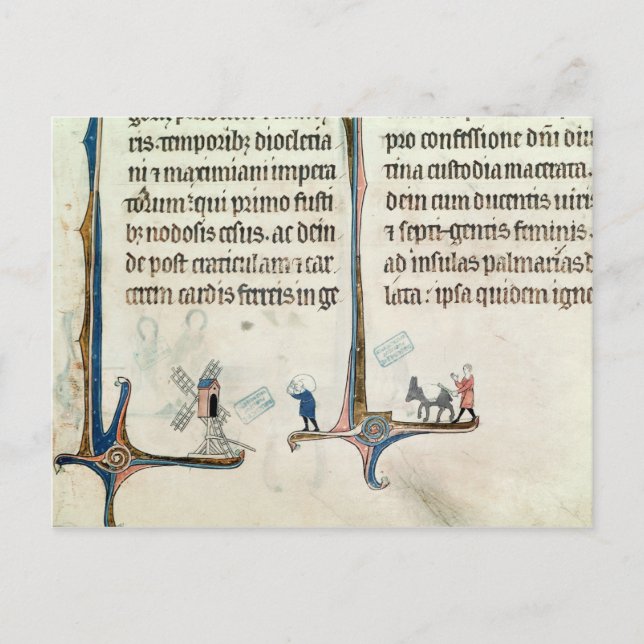 ris. temporibꝫ diocletia
ni ⁊ maximiani impera
torum: qui primo fusti
bꝫ nodosis cesus. ac dein
de post craticulam ⁊ car
cerem cardis ferreis in ge
pro confessione dn̄i diu
tina custodia macerata.
dein cum ducentis uiris
⁊ septigentis feminis.
ad insulas palmarias
lata: ipsa quidem igne